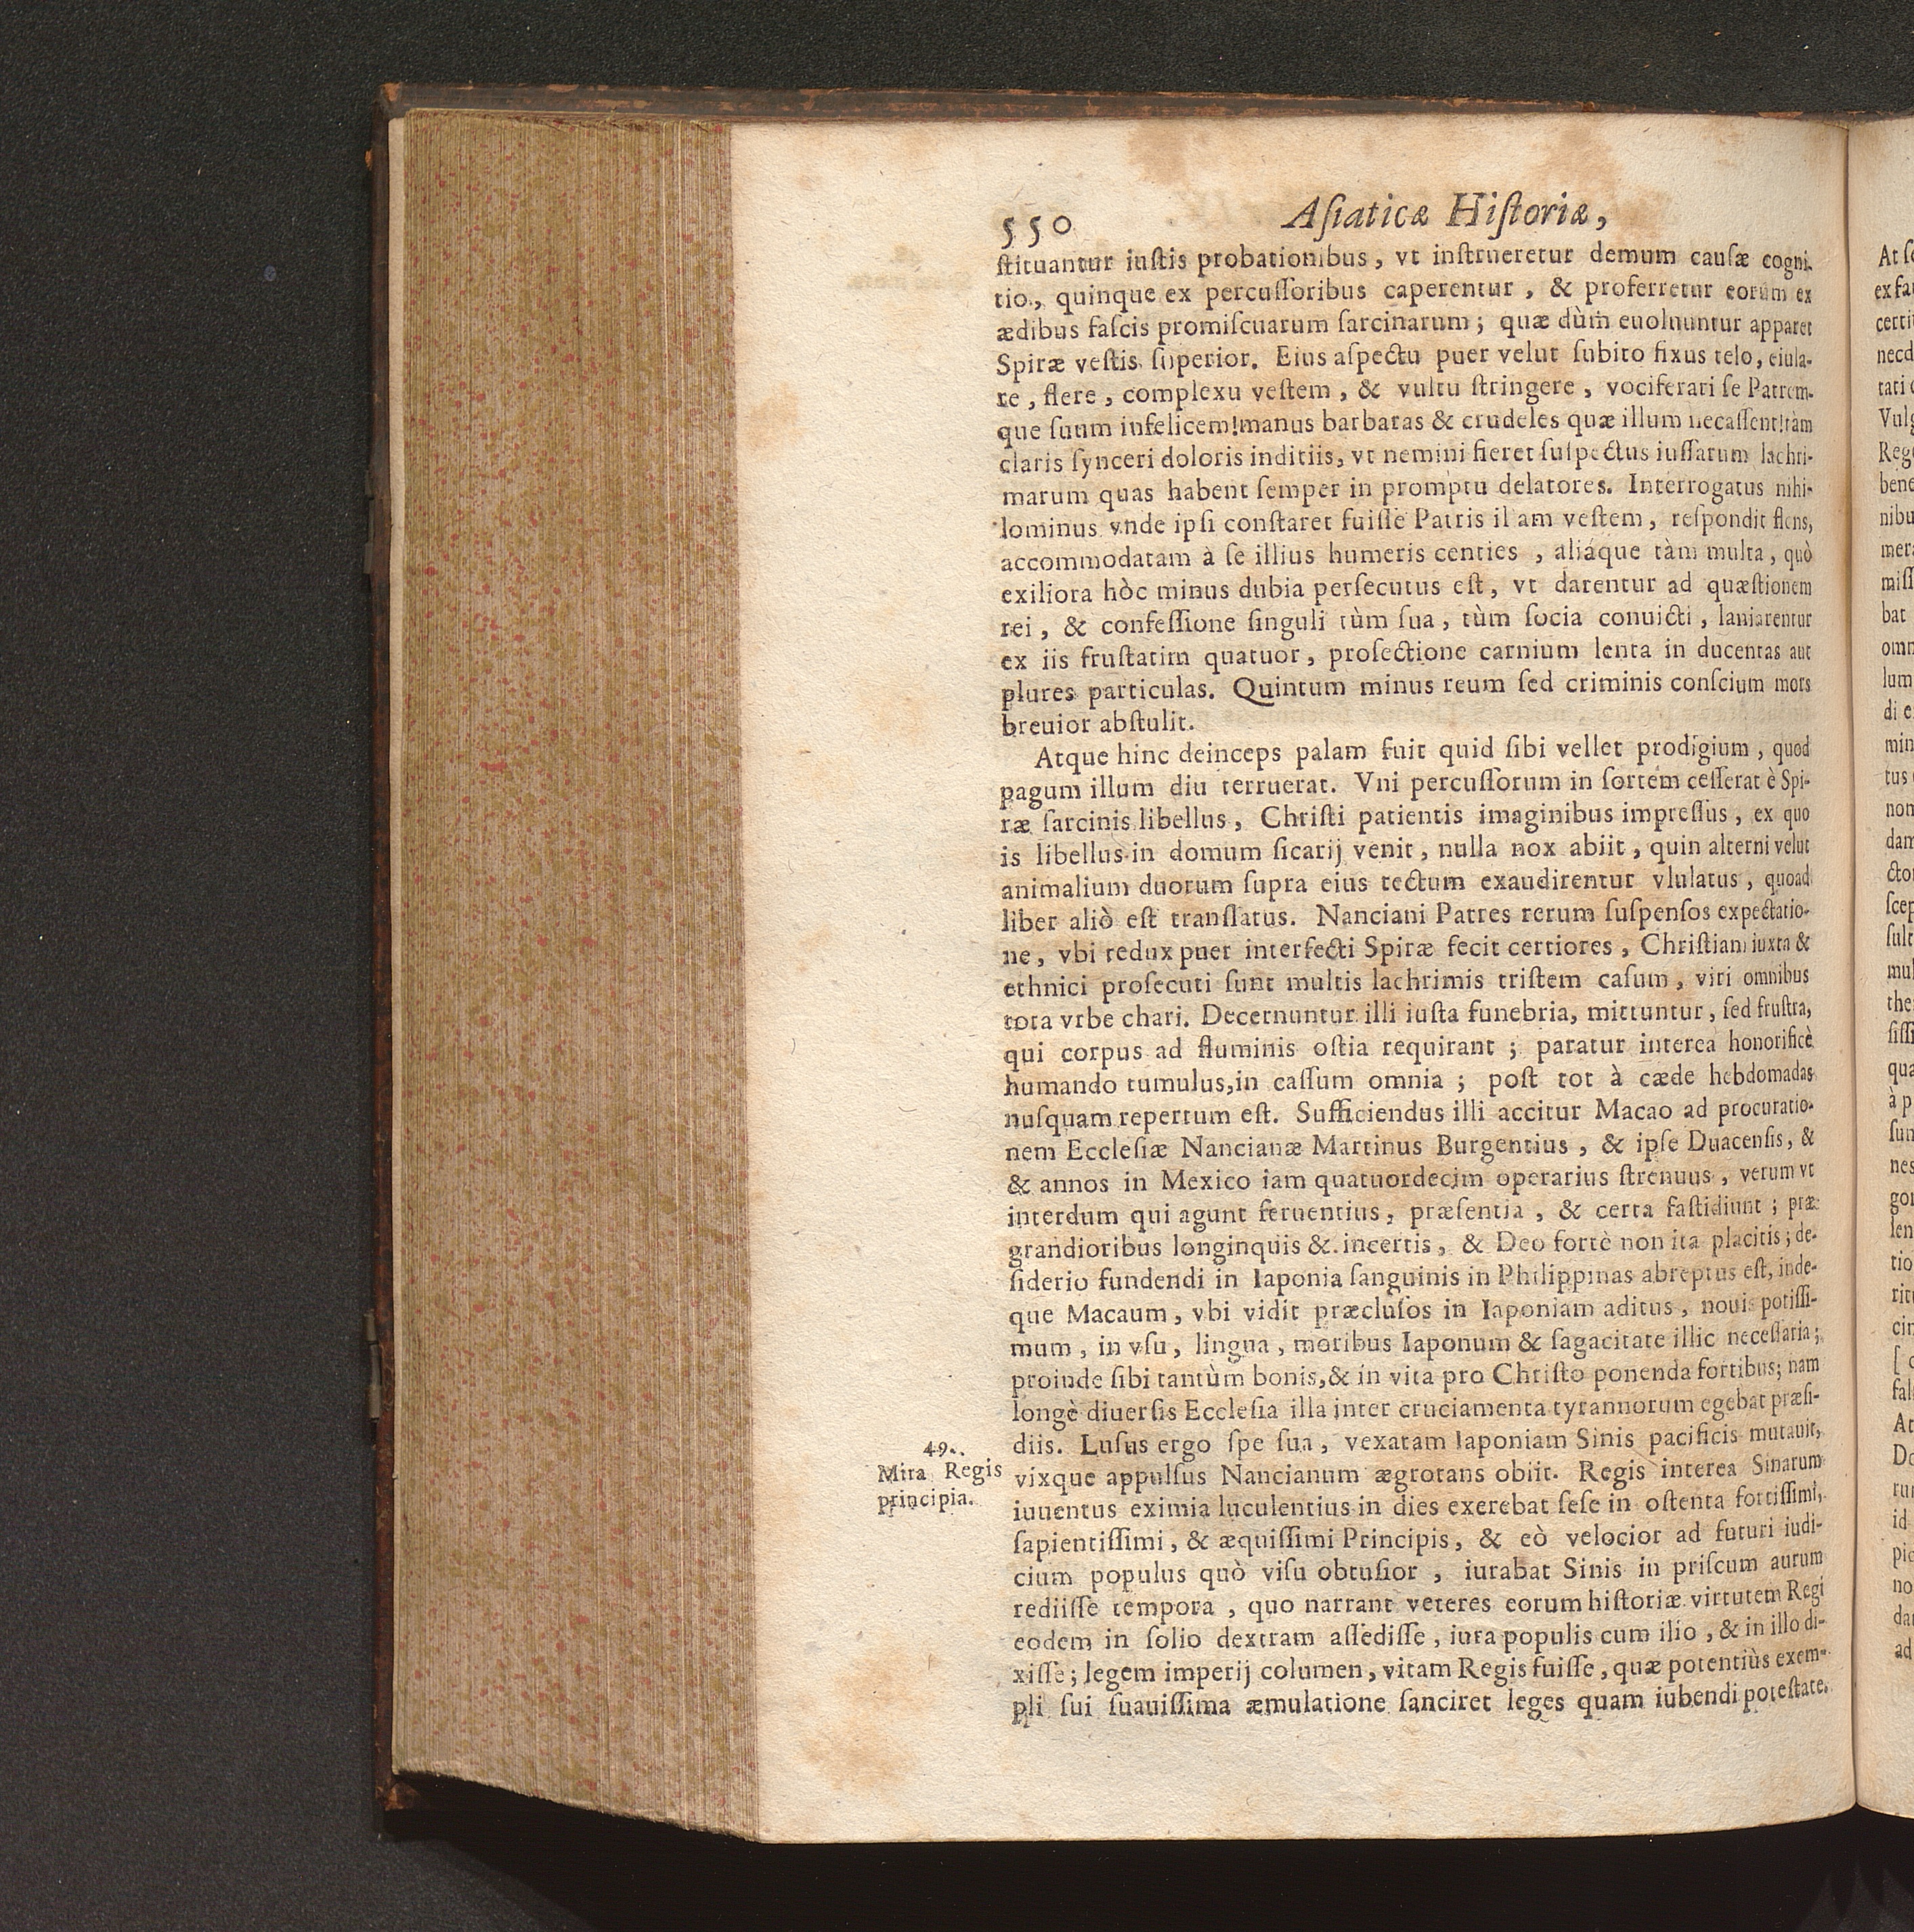 550 Asiaticæ Historiæ,
stituantur iustis probationibus, vt instrueretur demum causæ cogni-
tio, quinque ex percussoribus caperentur, & proferretur eorum ex
ædibus fascis promiscuarum sarcinarum; quæ dùm euoluuntur apparet
Spiræ vestis superior. Eius aspectu puer velut subito fixus telo, eiula-
re, flere, complexu vestem, & vultu stringere, vociferari se Patrem-
que suum infelicem! manus barbaras & crudeles quæ illum necassent! tàm
claris synceri doloris inditiis, vt nemini fieret suspectus iussarum lachri-
marum quas habent semper in promptu delatores. Interrogatus nihi-
lominus vnde ipsi constaret fuisse Patris il am vestem, respondit flens,
accommodatam à se illius humeris centies, aliáque tàm multa, quò
exiliora hòc minus dubia persecutus est, vt darentur ad quæstionem
rei, & confessione singuli tùm sua, tùm socia conuicti, laniarentur
ex iis frustatim quatuor, prosectione carnium lenta in ducentas aut
plures particulas. Quintum minus reum sed criminis conscium mors
breuior abstulit.
Atque hinc deinceps palam fuit quid sibi vellet prodigium, quod
pagum illum diu terruerat. Vni percussorum in sortem cesserat è Spi-
ræ sarcinis libellus, Christi patientis imaginibus impressus, ex quo
is libellus in domum sicarij venit, nulla nox abiit, quin alterni velut
animalium duorum supra eius tectum exaudirentur vlulatus, quoad
liber aliò est translatus. Nanciani Patres rerum suspensos expectatio-
ne, vbi redux puer interfecti Spiræ fecit certiores, Christiani iuxta &
ethnici prosecuti sunt multis lachrimis tristem casum, viri omnibus
tota vrbe chari. Decernuntur illi iusta funebria, mittuntur, sed frustra,
qui corpus ad fluminis ostia requirant; paratur interea honorificè
humando tumulus, in cassum omnia; post tot à cæde hebdomadas
nusquam repertum est. Sufficiendus illi accitur Macao ad procuratio-
nem Ecclesiæ Nancianæ Martinus Burgentius, & ipse Duacensis, &
& annos in Mexico iam quatuordecim operarius strenuus, verum vt
interdum qui agunt feruentius, præsentia, & certa fastidiunt; præ
grandioribus longinquis & incertis, & Deo fortè non ita placitis; de-
siderio fundendi in Iaponia sanguinis in Philippinas abreptus est, inde-
que Macaum, vbi vidit præclusos in Iaponiam aditus, nouis potissi-
mum, in vsu, lingua, moribus Iaponum & sagacitate illic necessaria;
proinde sibi tantùm bonis, & in vita pro Christo ponenda fortibus; nam
longè diuersis Ecclesia illa inter cruciamenta tyrannorum egebat præsi-
diis. Lusus ergo spe sua, vexatam Iaponiam Sinis pacificis mutauit,
vixque appulsus Nancianum ægrotans obiit. Regis interea Sinarum
iuuentus eximia luculentius in dies exerebat sese in ostenta fortissimi,
sapientissimi, & æquissimi Principis, & eò velocior ad futuri iudi-
cium populus quò visu obtusior, iurabat Sinis in priscum aurum
rediisse tempora, quo narrant veteres eorum historiæ virtutem Regi
eodem in solio dextram assedisse, iura populis cum ilio, & in illo di-
xisse; legem imperij columen, vitam Regis fuisse, quæ potentiùs exem-
pli sui suauissima æmulatione sanciret leges quam iubendi potestate.
49.
Mira Regis
principia.